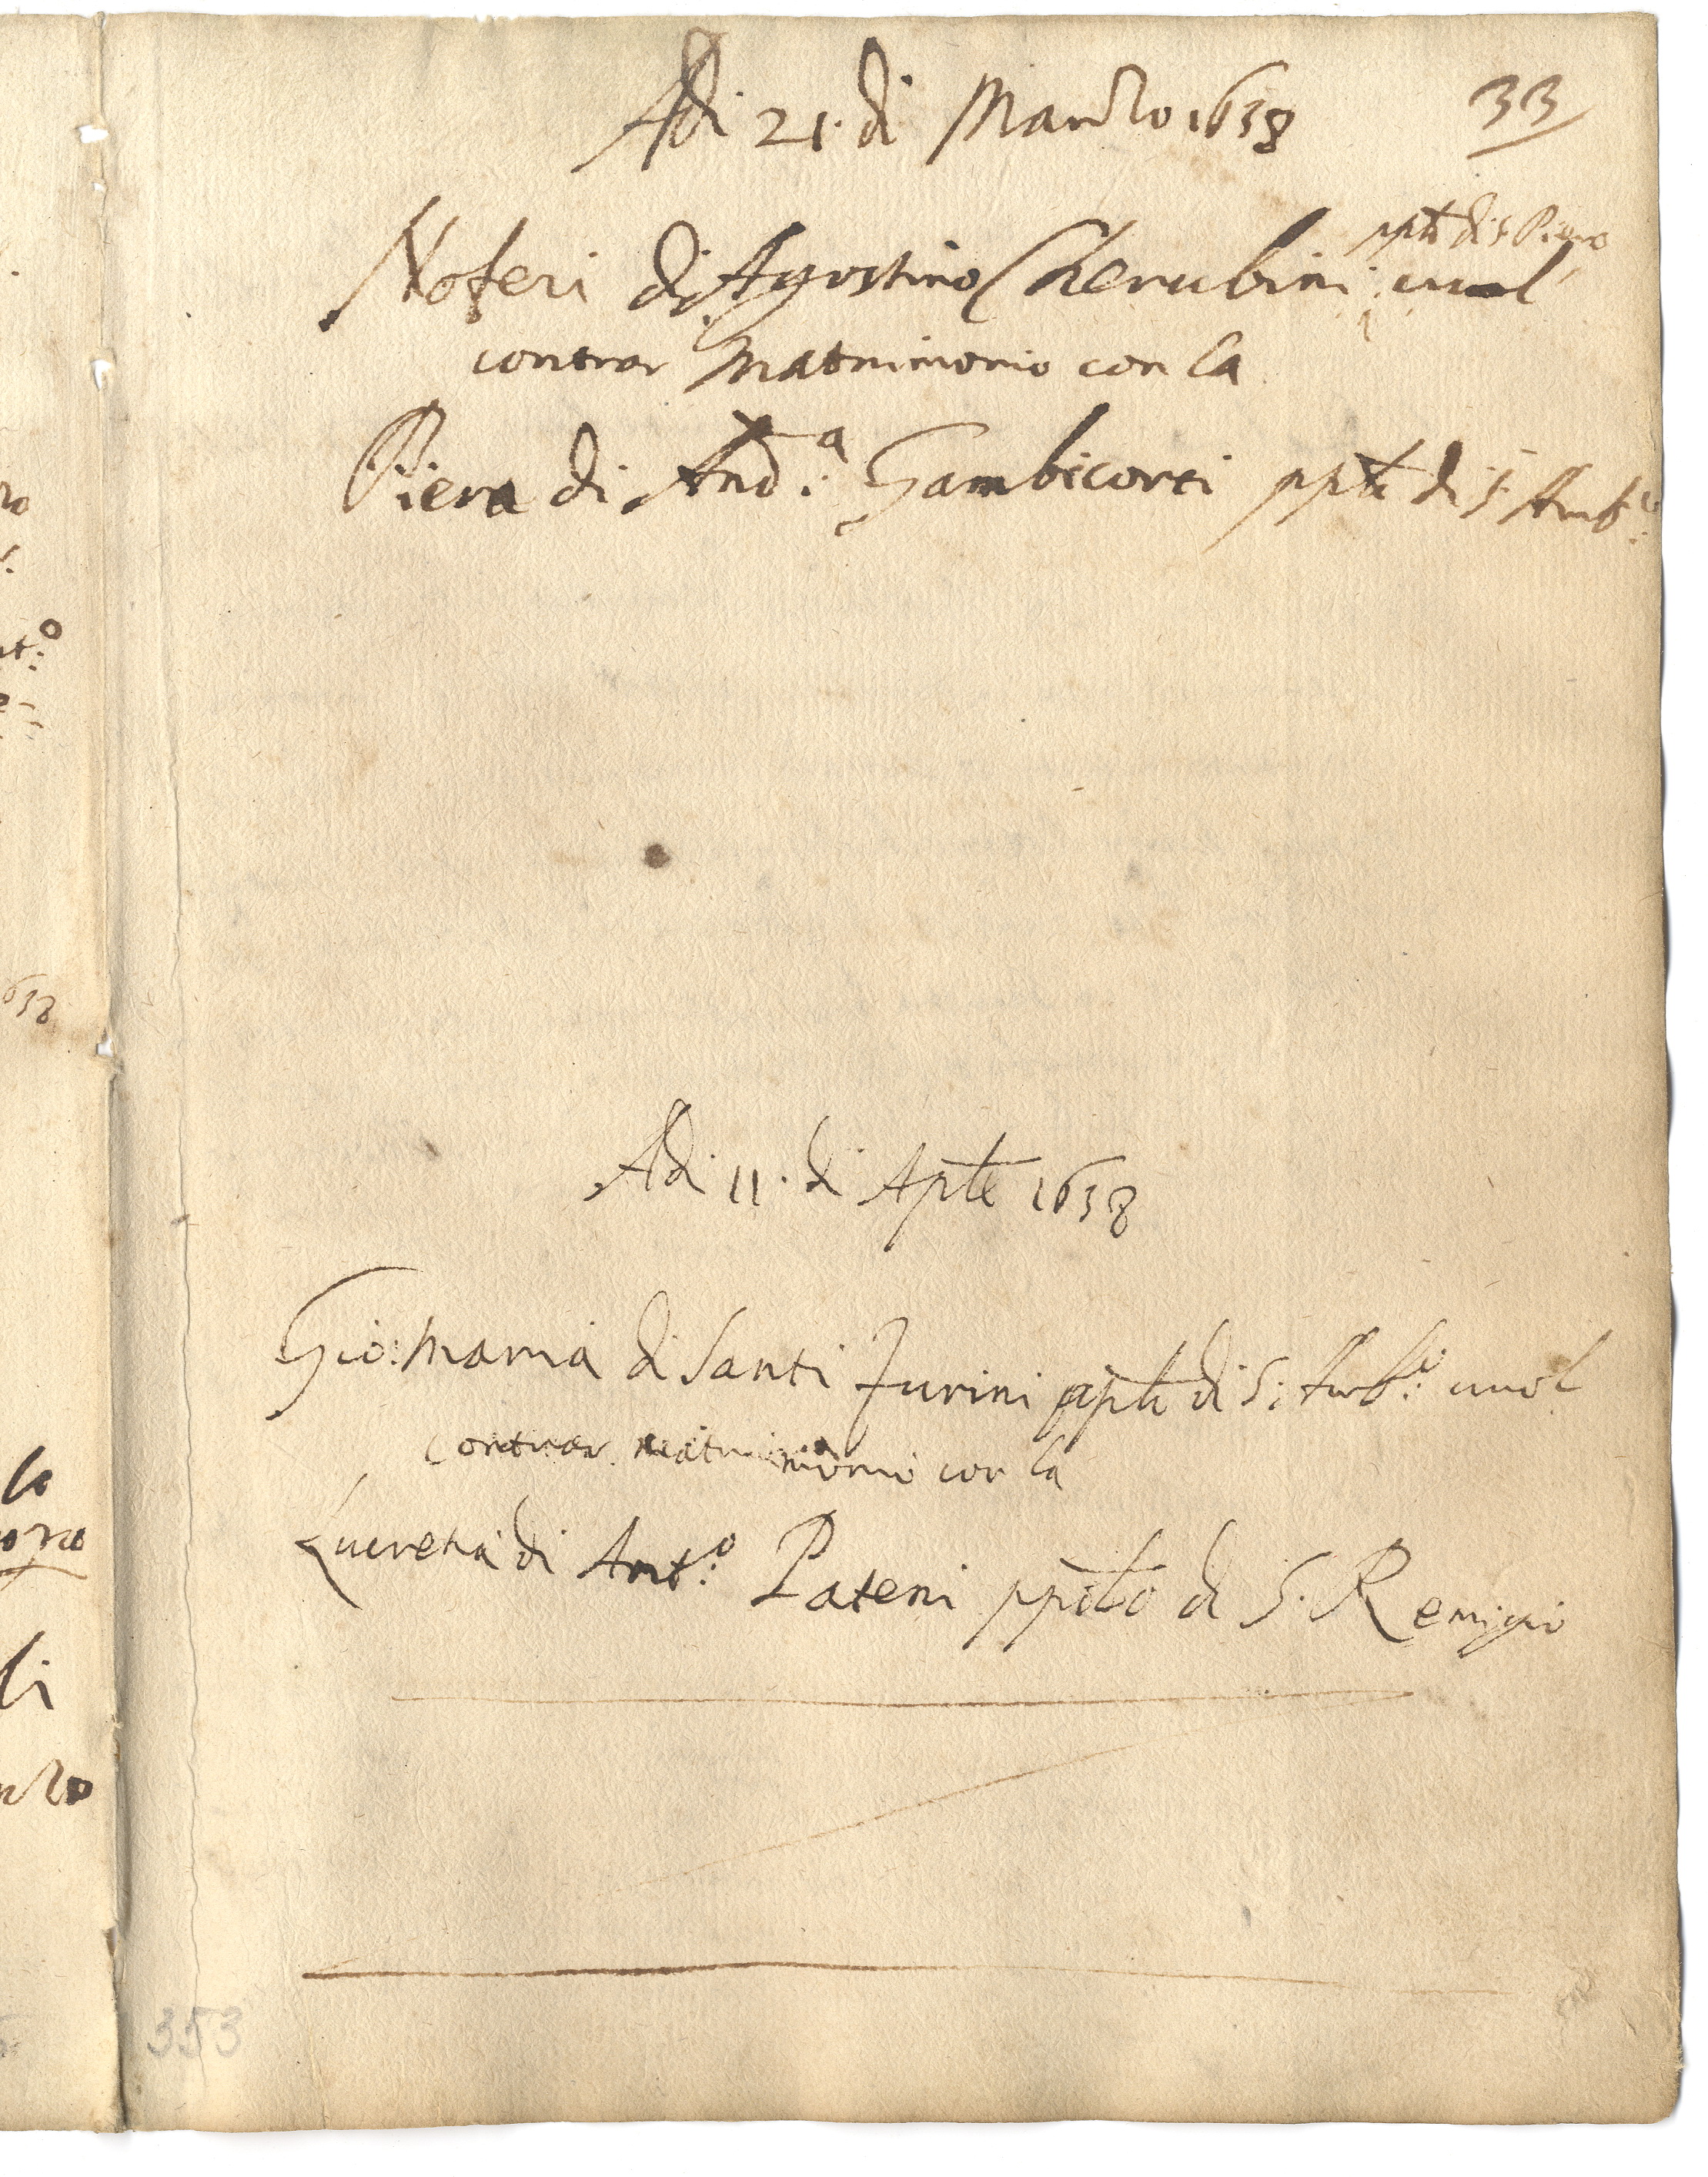 33
Adi 21. di Marzo 1638
ppło di S. Piero
Noferi di Agostino Cherubini vuol
contrar Matrimonio con la
Piera di And.ª Gambicorti ppło di S. Amb.º
Adi 11. di Aple 1638
Gio: Maria di Santi Furini pplo di S. Amb.º vuol
contrar matrimonio con la
Lucretia di Ant.º Pateni ppolo di S. Remigio
353